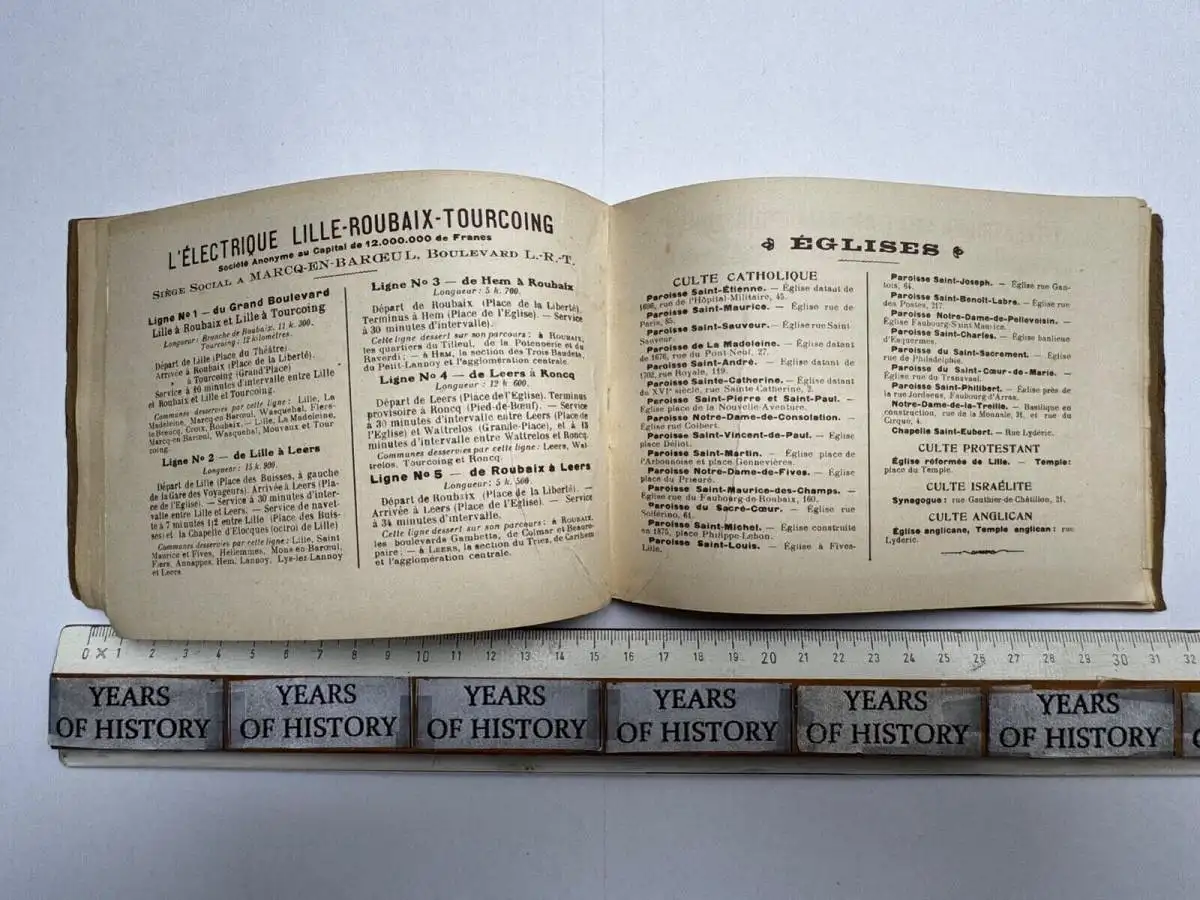 L'ÉLECTRIQUE LILLE-ROUBAIX-TOURCOING
Société Anonyme au Capital de 12.000.000 de Francs
SIÈGE SOCIAL A MARCQ-EN-BARŒUL, BOULEVARD L.-R.-T.
Ligne No 1 — du Grand Boulevard
Lille à Roubaix et Lille à Tourcoing
Longueur: Branche de Roubaix, 11 k. 300.
Tourcoing: 12 kilomètres.
Départ de Lille (Place du Théâtre).
Arrivée à Roubaix (Place de la Liberté).
» à Tourcoing (Grand'Place)
Service à 10 minutes d'intervalle entre Lille
et Roubaix et Lille et Tourcoing.
Communes desservies par cette ligne: Lille, La
Madeleine, Marcq-en-Barœul, Wasquehal, Flers-
le-Breucq, Croix, Roubaix. — Lille, La Madeleine,
Marcq-en Barœul, Wasquehal, Mouvaux et Tour
coing.
Ligne No 2 — de Lille à Leers
Longueur: 15 k. 900.
Départ de Lille (Place des Buisses, à gauche
de la Gare des Voyageurs). Arrivée à Leers (Pla-
ce de l'Eglise). — Service à 30 minutes d'inter-
valle entre Lille et Leers. — Service de navet-
te à 7 minutes 1/2 entre Lille (Place des Buis-
ses) et la Chapelle d'Elocques (octroi de Lille)
Communes desservies par cette ligne: Lille, Saint
Maurice et Fives, Hellemmes, Mons-en-Barœul,
Flers, Annappes, Hem, Lannoy, Lys-lez-Lannoy
et Leers.
Ligne No 3 — de Hem à Roubaix
Longueur: 5 k. 700.
Départ de Roubaix (Place de la Liberté).
Terminus à Hem (Place de l'Eglise). — Service
à 30 minutes d'intervalle.
Cette ligne dessert sur son parcours: à ROUBAIX,
les quartiers du Tilleul, de la Potennerie et du
Raverdi; — à HEM, la section des Trois Baudets,
du Petit-Lannoy et l'agglomération centrale.
Ligne No 4 — de Leers à Roncq
Longueur: 12 k 600.
Départ de Leers (Place de l'Eglise). Terminus
provisoire à Roncq (Pied-de-Bœuf). — Service
à 30 minutes d'intervalle entre Leers (Place de
l'Eglise) et Wattrelos (Grande-Place), et à 15
minutes d'intervalle entre Wattrelos et Roncq.
Communes desservies par cette ligne: Leers, Wat
trelos, Tourcoing et Roncq.
Ligne No 5 — de Roubaix à Leers
Longueur: 5 k. 500.
Départ de Roubaix (Place de la Liberté). —
Arrivée à Leers (Place de l'Eglise). — Service
à 34 minutes d'intervalle.
Cette ligne dessert sur son parcours: à ROUBAIX,
les boulevards Gambetta, de Colmar et Beaure-
paire; — à LEERS, la section du Triez, de Carihem
et l'agglomération centrale.
ÉGLISES
CULTE CATHOLIQUE
Paroisse Saint-Étienne. — Église datant de
1696, rue de l'Hôpital-Militaire, 45.
Paroisse Saint-Maurice. — Église rue de
Paris, 85.
Paroisse Saint-Sauveur. — Église rue Saint
Sauveur.
Paroisse de La Madeleine. — Église datant
de 1676, rue du Pont-Neuf, 27.
Paroisse Saint-André. — Église datant de
1702, rue Royale, 119.
Paroisse Sainte-Catherine. — Église datant
du XVIe siècle, rue Sainte Catherine, 2.
Paroisse Saint-Pierre et Saint-Paul. —
Église place de la Nouvelle-Aventure.
Paroisse Notre-Dame-de-Consolation. —
Église rue Colbert.
Paroisse Saint-Vincent-de-Paul. — Église
place Déliot.
Paroisse Saint-Martin. — Église place de
l'Arbonnoise et place Gennevières.
Paroisse Notre-Dame-de-Fives. — Église
place du Prieuré.
Paroisse Saint-Maurice-des-Champs. —
Église rue du Faubourg-de-Roubaix, 160.
Paroisse du Sacré-Cœur. — Église rue
Solférino, 61.
Paroisse Saint-Michel. — Église construite
en 1875, place Philippe-Lebon.
Paroisse Saint-Louis. — Église à Fives-
Lille.
Paroisse Saint-Joseph. — Église rue Gan-
tois, 64.
Paroisse Saint-Benoît-Labre. — Église rue
des Postes, 217.
Notre-Dame-de-Pellevoisin. —
Église Faubourg-Saint Maurice.
Paroisse Saint-Charles. — Église banlieue
d'Esquermes.
Paroisse du Saint-Sacrement. — Église
rue de Philadelphie.
Paroisse du Saint-Cœur-de-Marie. —
Église rue du Transvaal.
Paroisse Saint-Philibert. — Église près de
la rue Jordaens, Faubourg d'Arras.
Notre-Dame-de-la-Treille. — Basilique en
construction, rue de la Monnaie, 31, et rue du
Cirque, 4.
Chapelle Saint-Eubert. — Rue Lydéric.
CULTE PROTESTANT
Église réformée de Lille. — Temple:
place du Temple.
CULTE ISRAÉLITE
Synagogue: rue Gauthier-de-Châtillon, 21.
CULTE ANGLICAN
Église anglicane, Temple anglican: rue
Lydéric.
0 1 2 3 4 5 6 7 8 9 10 11 12 13 14 15 16 17 18 19 20 21 22 23 24 25 26 27 28 29 30 31 32
YEARS
OF HISTORY
YEARS
OF HISTORY
YEARS
OF HISTORY
YEARS
OF HISTORY
YEARS
OF HISTORY
YEARS
OF HISTORY